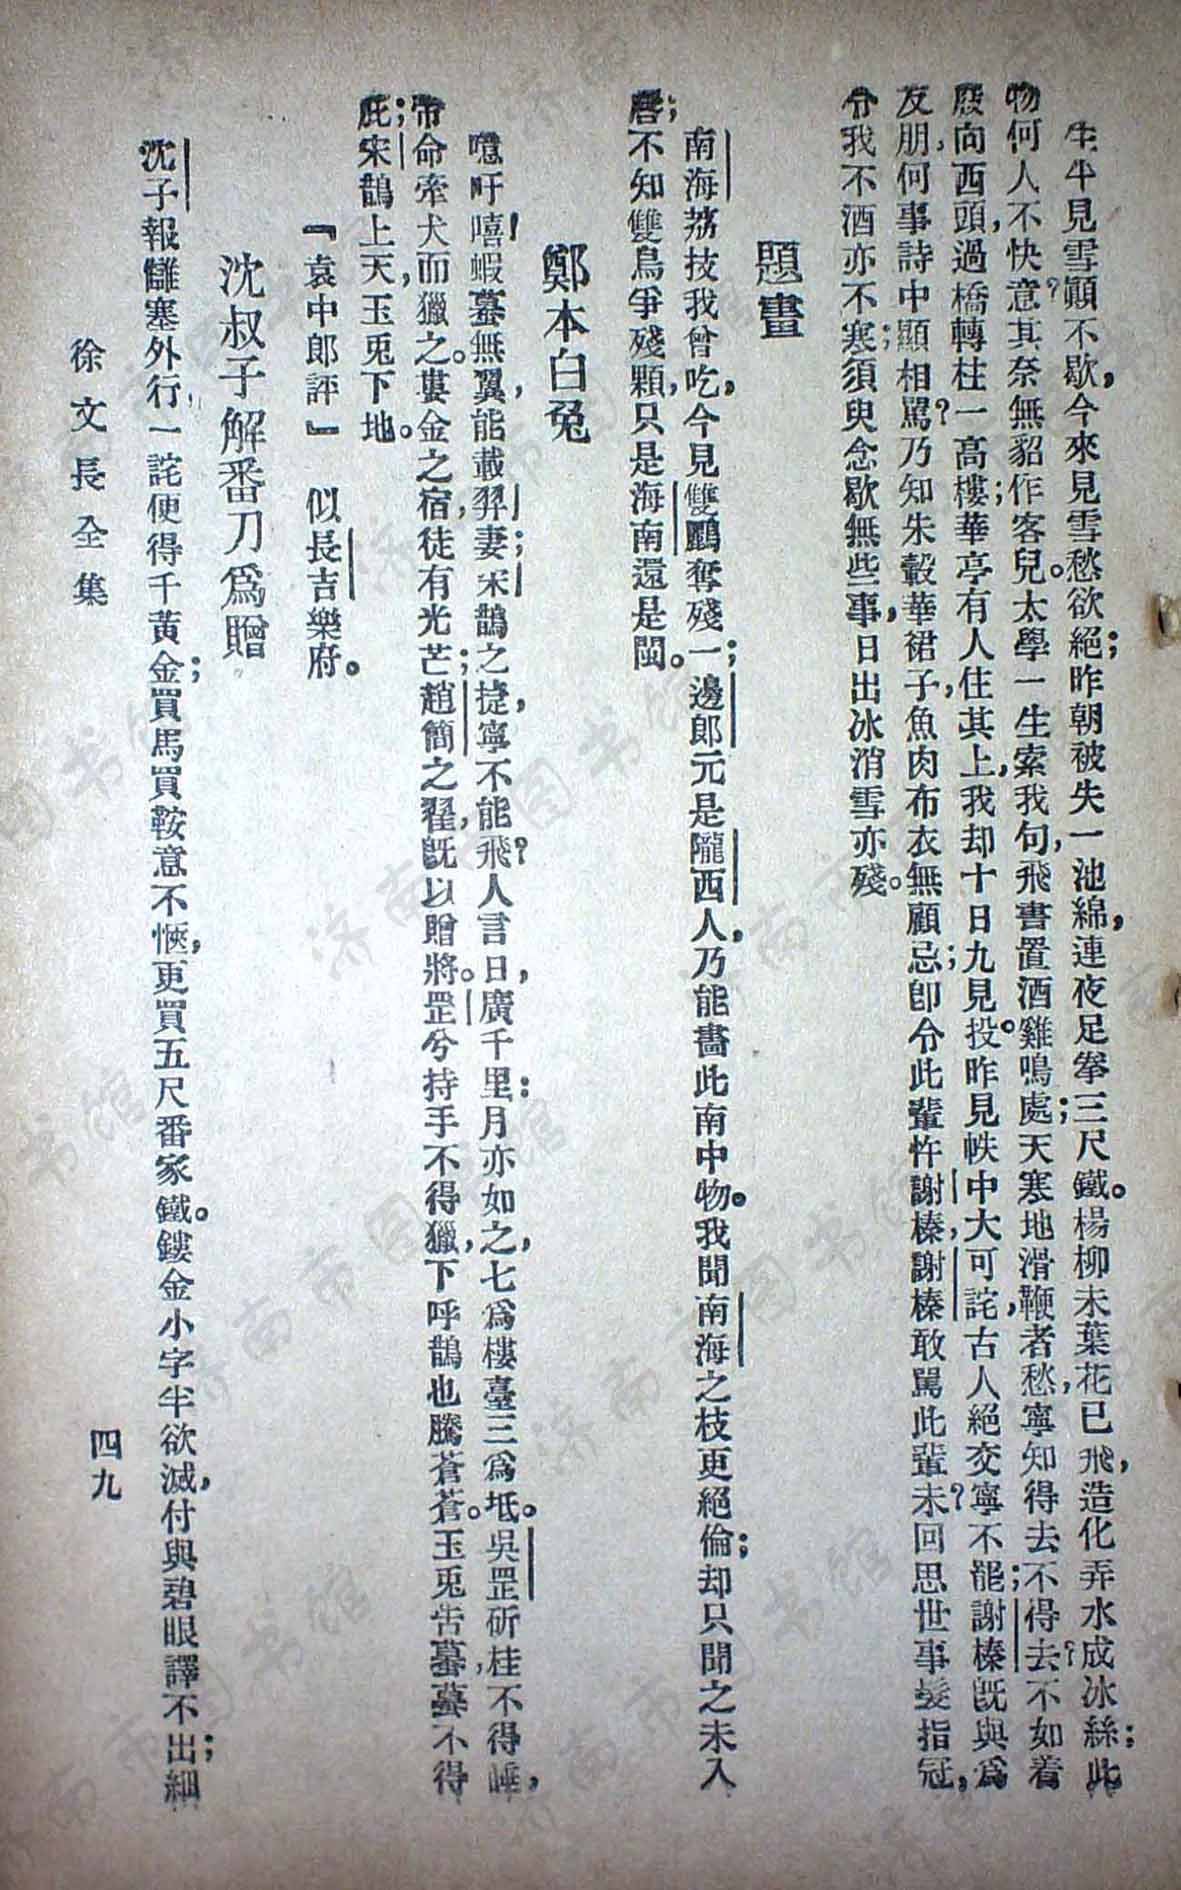 生平見雪顚不歇，今來見雪愁欲絕；昨朝被失一池綿，連夜足拳三尺鐵。楊柳未葉花已飛，造化弄水成冰絲；此
物何人不快意？其奈無貂作客兒。太學一生索我句，飛書置酒雞鳴處；天寒地滑鞭者愁，寧知得去不得去？不如着
屐向西頭，過橋轉柱一高樓；華亭有人住其上，我却十日九見投。昨見帙中大可詫，古人絕交寧不罷？謝榛旣與爲
友朋，何事詩中顯相駡？乃知朱轂華裾子，魚肉布衣無顧忌；卽令此輩忤謝榛，謝榛敢駡此輩未？回思世事髮指冠，
令我不酒亦不寒；須臾念歇無些事，日出冰消雪亦殘。
題畫
南海荔技我曾吃，今見雙鸝奪殘一；邊郎元是隴西人，乃能畵此南中物。我聞南海之枝更絕倫；却只聞之未入
唇；不知雙鳥爭殘顆，只是海南還是閩。
鄭本白兔
噫吁嘻！蝦蟇無翼，能載羿妻；宋鵲之捷，寧不能飛？人言日，廣千里：月亦如之，七爲樓臺三爲坻。吳罡斫桂不得睡，
帝命牽犬而獵之。婁金之宿，徒有光芒；趙簡之翟，旣以贈將。罡兮持手不得獵，下呼鵲也騰蒼蒼。玉兎告蟇，蟇不得
庇；宋鵲上天，玉兎下地。
『袁中郎評』　似長吉樂府。
沈叔子解番刀爲贈
沈子報讎塞外行，一詫便得千黃金；買馬買鞍意不愜，更買五尺番家鐵。鏤金小字半欲滅，付與碧眼譯不出；細
徐文長全集
四九